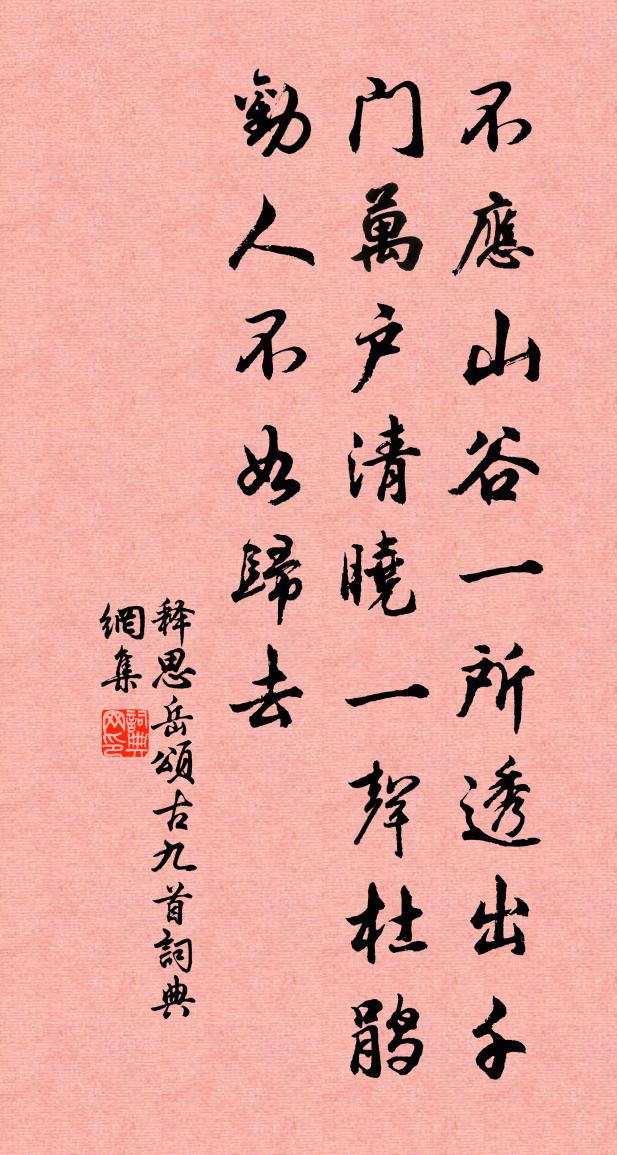 不應山谷一所透出千
门萬户清曉一聲杜鹃
勸人不如歸去
释思岳頌古九首詞典
網集
詞典
网印